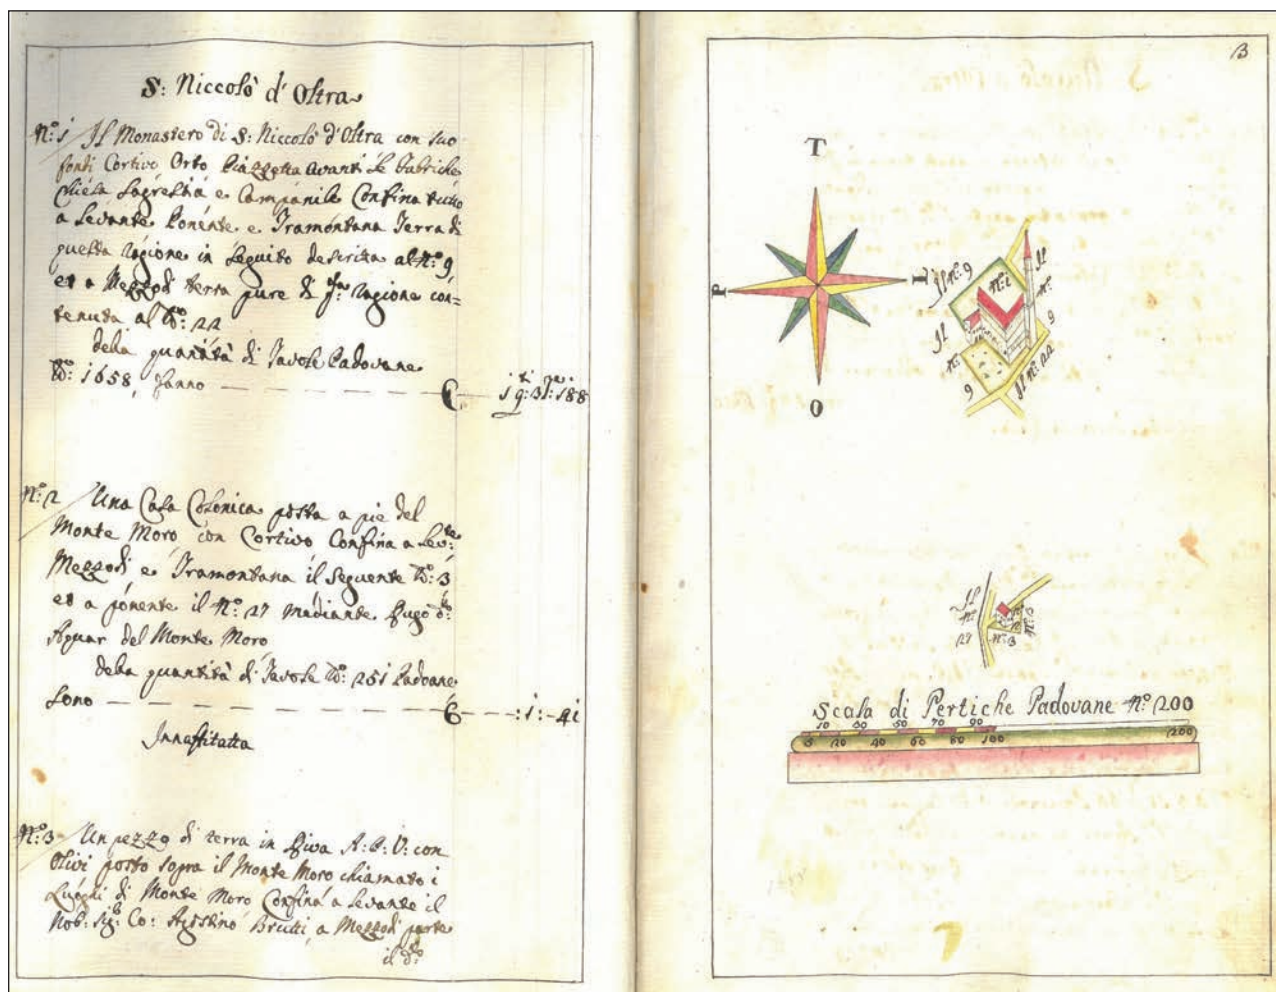 S: Niccolò d'Oltra
N:º 1 Il Monastero di S: Niccolò d'Oltra con suo
fondi Cortivo Orto Piazzetta avanti le Fabriche
Chiesa Sagrestia e Campanile Confina tutto
a Levante Ponente e Tramontana Terra di
questa ragione in seguito descritta al N:º 9
et a Mezzodì terra pure di ragione con=
tenuta al N:º 22
della quantità di Tavole Padovane
N:º 1658, fanno
N:º 2 Una Casa Colonica posta a piè del
Monte Moro con Cortivo Confina a Lev:te
Mezzodì e Tramontana il seguente N:º 3
et a ponente il N:º 27 mediante
Aguar del Monte Moro
della quantità di Tavole N:º 251 Padoane
sono
Innaffitatta
N:º 3 Un pezzo di terra in Riva A: P: V: con
Olivi posto sopra il Monte Moro chiamato i
Luoghi di Monte Moro Confina a Levante il
Nob: Sig:r Co: Agostino Brutti, a Mezzodì parte
il d:º
3
T
P
L
O
Il Nº: 9
Nº: 1
Il
Nº:
9
Il
Nº:
9
Il Nº: 22
Il
Nº:
27
Nº: 3
Nº: 3
Scala di Pertiche Padovane Nº: 200
10 30 50 70 90
20 40 60 80 100 200